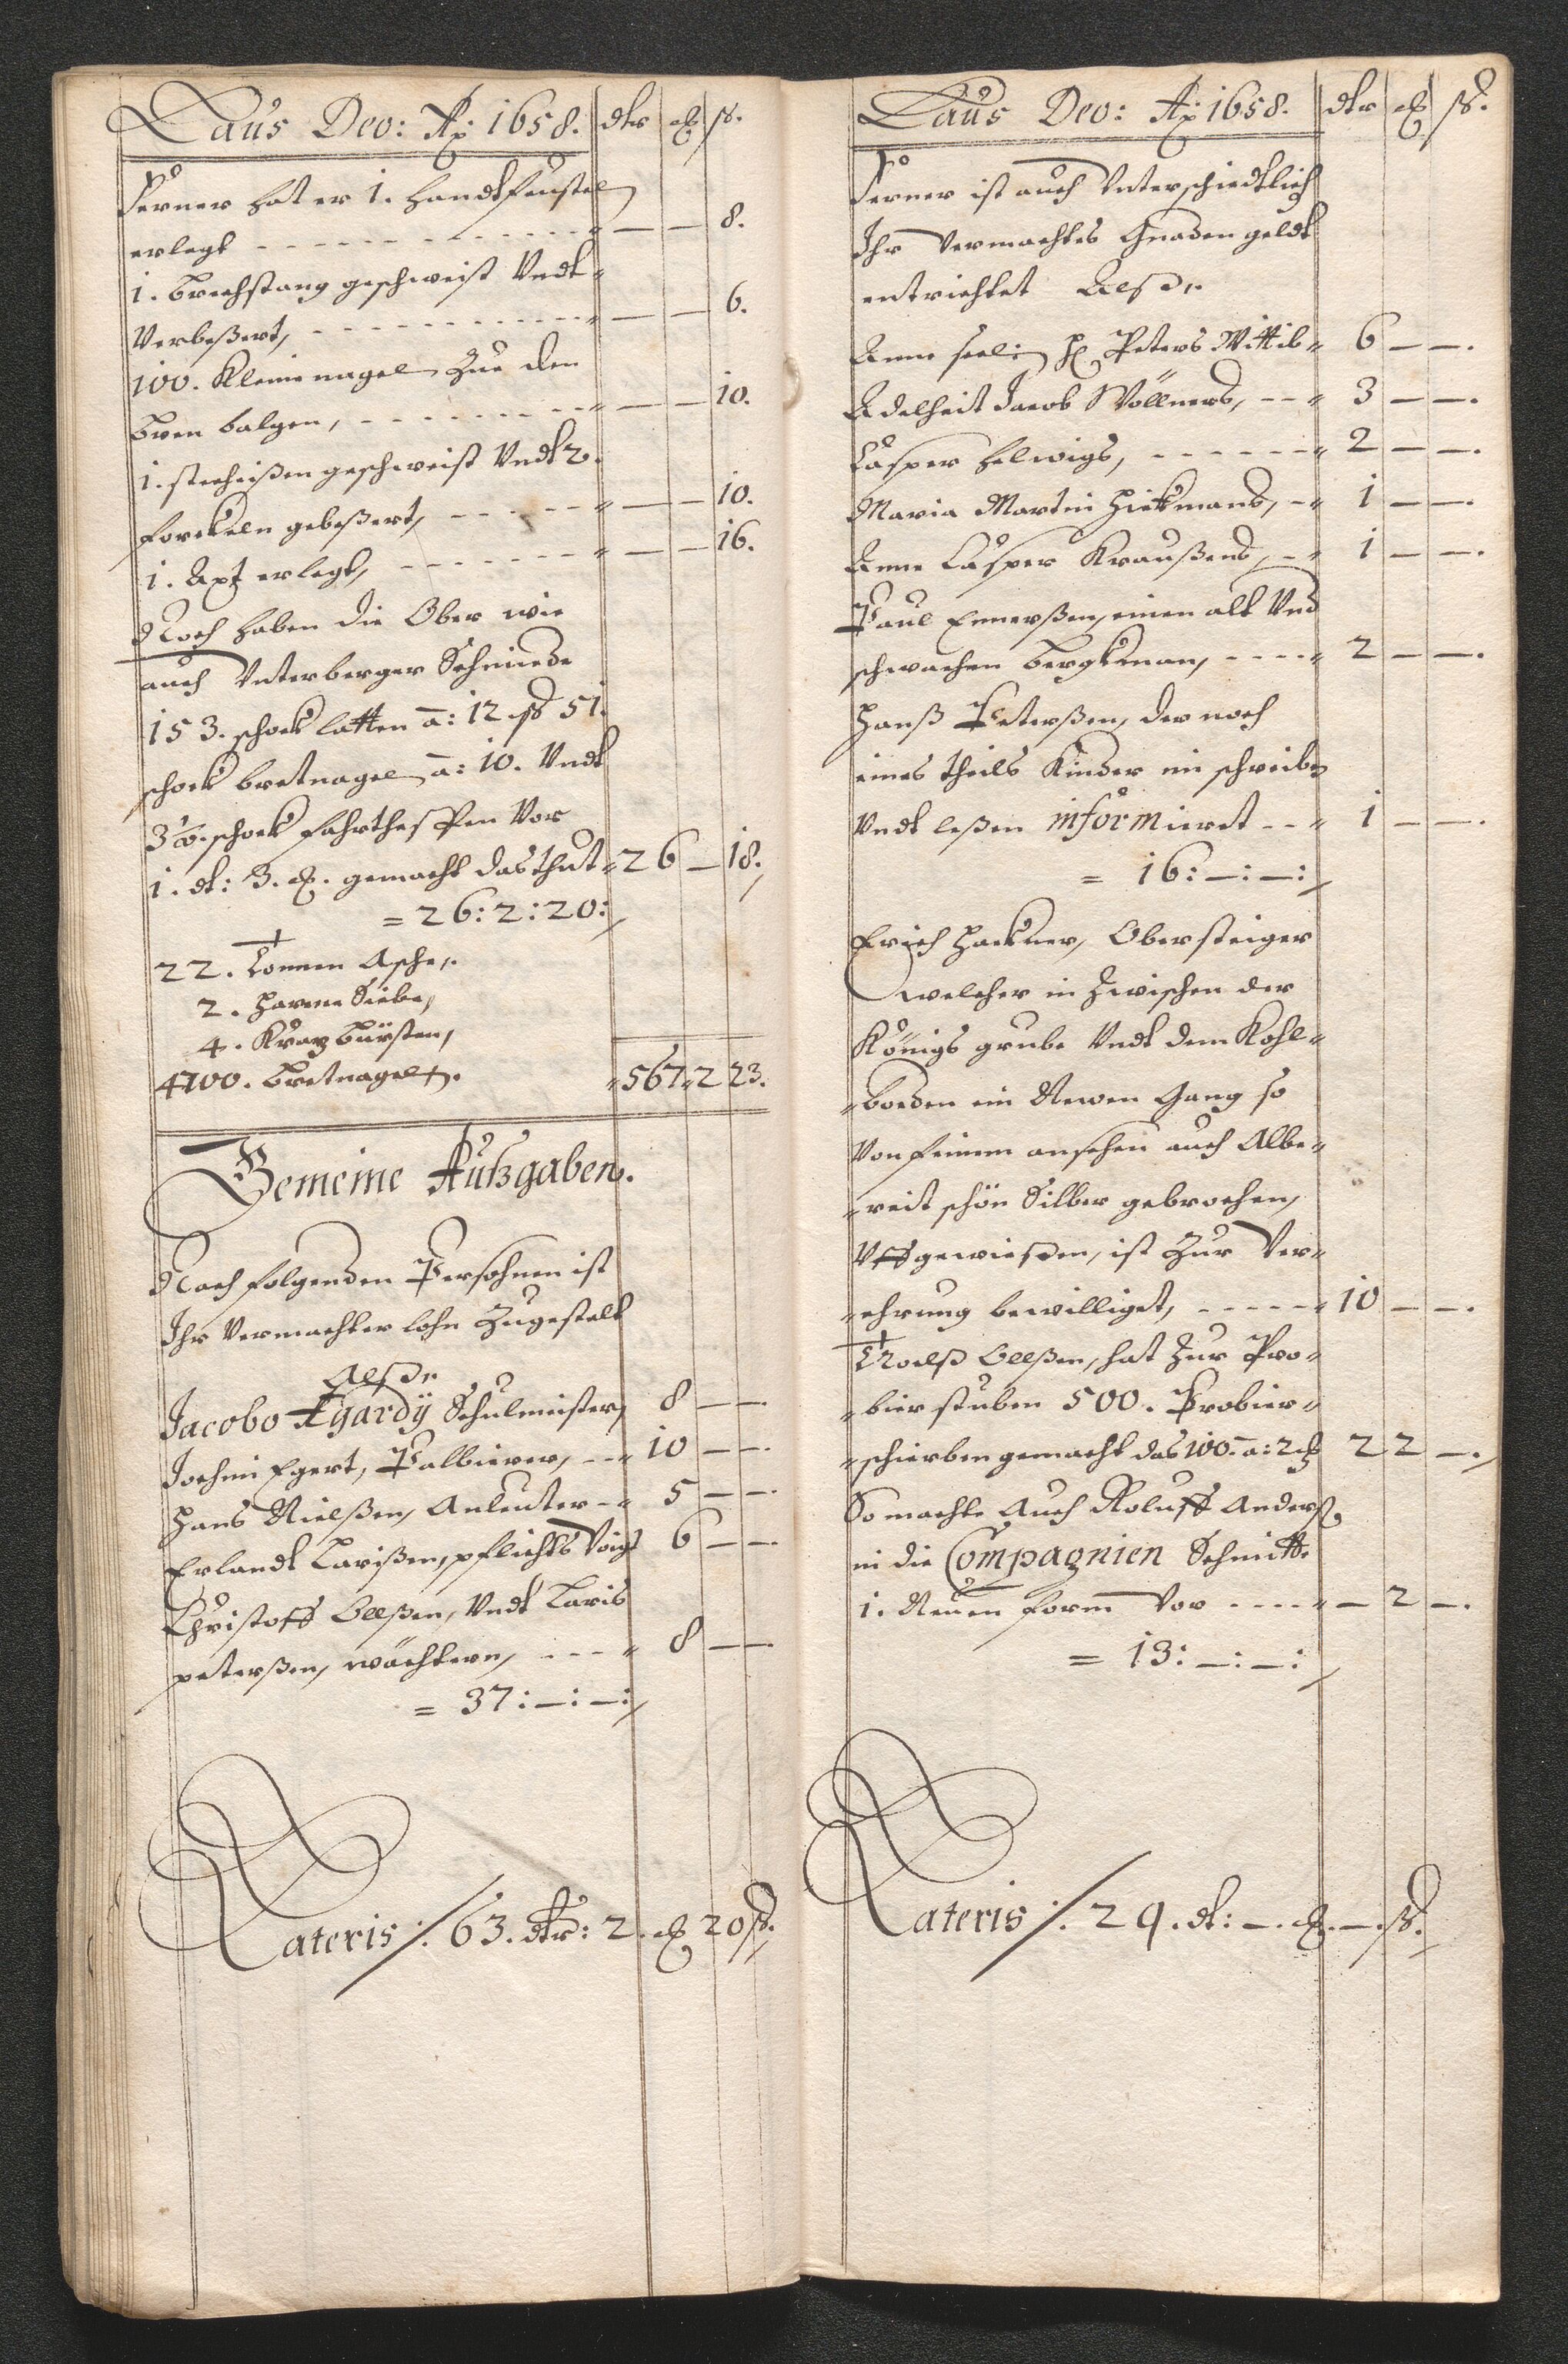 Laus Deo: Ao: 1658. dlr ort ß.
Ferner hat er 1. handtfeustel
erlegt - - - - - - " — — 8.
1. Brechstang geschweist Vndt"
Verbeßert, - - - - - - " — — 6.
100. Kleine nagel Zue den
- - - - - - " — — 10.
1. stecheißen geschweist Vndt 2.
gebeßert, - - - - - " — — 10.
1. Axt erlegt, - - - - - " — — 16.
Noch haben die Ober wie
auch Vnterberger Schmiede
153. schock latten ā: 12 ß 51.
schock bretnagel ā: 10. Vndt
schock fahrthespen Vor
1. dt: 3. ort. gemacht das thut" 26 — 18.
= 26: 2: 20:
22. Tonnen Asche,
2. Harene Siebe,
4. Kratz bürsten,
4700. Bretnagel.
" 567" 2 23.
Gemeine Außgaben.
Nachfolgenden Persohnen ist
Ihr Vermachter lohn Zugestalt
Alß
Jacobo Egardÿ Schulmeister, 8 — —.
Jochim Egert, Palbierer, - - " 10 — —.
Hans Nielßen, Anleuter - " 5 — —.
Erlandt Larißen, pflichts Voigt 6 — —.
Christoff Ollßen, Vndt Laris
peterßen, wächtern, - - - " 8 — —.
= 37: —: —:
Lateris /: 63. dlr: 2. ort 20 ß.
Laus Deo: Ao: 1658. dlr ort ß.
Ferner ist auch Vnterschiedtlich
Ihr Vermachtes Gnaden geldt
entrichtet Alß
Anne seel: H: Peters Wittib" 6 — —.
Adelheit Jacob Wöllners, - - " 3 — —.
Casper Helwigs, - - - - - " 2 — —.
Maria Martin Hickmans, - " 1 — —.
Anne Casper Kraußens, - " 1 — —.
Paul Ennerßen, einen alt Vnd
schwachen bergkman, - - - - " 2 — —.
Hanß Peterßen, der noch
eines theils Kinder im schreiben
Vndt leßen informieret - - " 1 — —.
= 16: —: —:
Erich Hackner, Obersteiger
welcher in Zwischen der
Königs grube Vndt dem Kohl"
"boden ein Newen Gang so
Von feinem ansehen auch Albe"
"reit schön Silber gebrochen,
Vffgewießen, ist Zur Ver"
"ehrung bewilliget, - - - - - " 10 — —.
Troelß Ollßen, hat Zur Pro"
"bierstuben 500. Probier"
"schierben gemacht das 100. ā: 2 ort 2 2 —.
So machte Auch Roluff Anderß.
in die Compagnien Schmitte
1. Neuen form Vor - - - - " — 2 —.
= 13: —: —:
Lateris /: 29. dt: —. ort. —. ß.